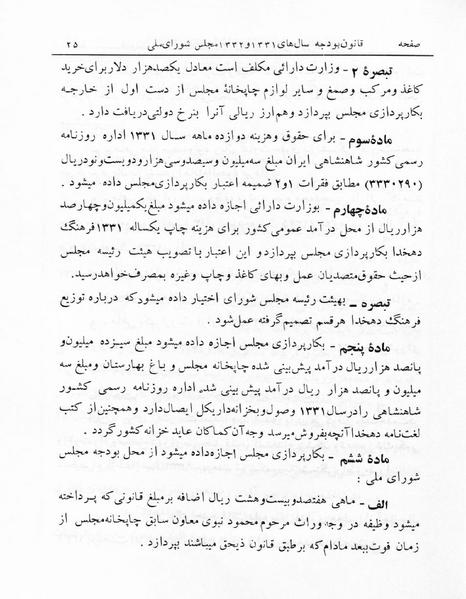 صفحه قانون بودجه سال‌های ۱۳۳۱ و ۱۳۳۲ مجلس شورای ملی ۲۵
تبصرهٔ ۲ - وزارت دارائی مکلف است معادل یکصد هزار دلار برای خرید
کاغذ و مرکب و صمغ و سایر لوازم چاپخانهٔ مجلس از دست اول از خارجه
بکارپردازی مجلس بپردازد و هم ارز ریالی آنرا بنرخ دولتی دریافت دارد .
مادهٔ سوم - برای حقوق و هزینه دوازده ماهه سال ۱۳۳۱ اداره روزنامه
رسمی کشور شاهنشاهی ایران مبلغ سه میلیون و سیصد و سی هزار و دویست و نود ریال
(۳۳۳۰۲۹۰) مطابق فقرات ۱ و ۲ ضمیمه اعتبار بکارپردازی مجلس داده میشود .
مادهٔ چهارم - بوزارت دارائی اجازه داده میشود مبلغ یکمیلیون و چهارصد
هزار ریال از محل درآمد عمومی کشور برای هزینه چاپ یکساله ۱۳۳۱ فرهنگ
دهخدا بکارپردازی مجلس بپردازد و این اعتبار با تصویب هیئت رئیسه مجلس
از حیث حقوق متصدیان عمل و بهای کاغذ و چاپ وغیره بمصرف خواهد رسید.
تبصره - بهیئت رئیسه مجلس شورای اختیار داده میشود که درباره توزیع
فرهنگ دهخدا هر قسم تصمیم گرفته عمل شود .
مادهٔ پنجم - بکارپردازی مجلس اجازه داده میشود مبلغ سیزده میلیون و
پانصد هزار ریال درآمد پیش بینی شده چاپخانه مجلس و باغ بهارستان و مبلغ سه
میلیون و پانصد هزار ریال درآمد پیش بینی شده اداره روزنامه رسمی کشور
شاهنشاهی را در سال ۱۳۳۱ وصول و بخزانه داریکل ایصال دارد و همچنین از کتب
لغت‌نامه دهخدا آنچه بفروش میرسد وجه آن کماکان عاید خزانه کشور گردد .
مادهٔ ششم - بکارپردازی مجلس اجازه داده میشود از محل بودجه مجلس
شورای ملی :
الف - ماهی هفتصد و بیست و هشت ریال اضافه بر مبلغ قانونی که پرداخته
میشود وظیفه در وجه وراث مرحوم محمود نبوی معاون سابق چاپخانه مجلس از
زمان فوت ببعد مادام که بر طبق قانون ذیحق میباشند بپردازد .